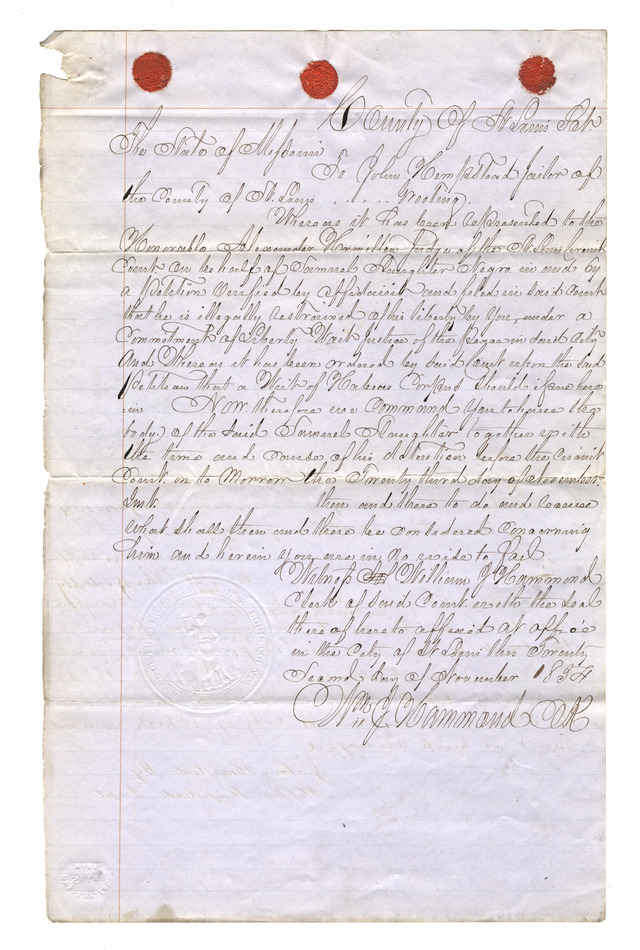 County of St Louis Sct
The State of Missouri
To John Hempstead Jailor of
the County of St. Louis ...... Greeting.
Whereas it has been represented to the
Honorable Alexander Hamilton Judge of the St. Louis Circuit
Court on behalf of Samuel Slaughter Negro in and by
a Petition verified by affidavit and filed in said Court
that he is illegally restrained of his liberty by You, under a
Commitment of Liberty Wait Justice of the Peace in said City
And Whereas it has been ordered by said Court upon the said
Petition that a Writ of Habeas Corpus should issue here
in Now therefore we Command You to have the
body of the Said Samuel Slaughter together with
the time and cause of his detention before the Circuit
Court on to Morrow the Twenty third day of November
Inst. then and there to do and receive
What shall then and there be considered concerning
him and herein you are in no wise to fail
Witness William J Hammond
Clerk of said Court with the Seal
thereof hereto affixed at office
in the City of St Louis this Twenty
Second day of November 1854
Wm J. Hammond Clk